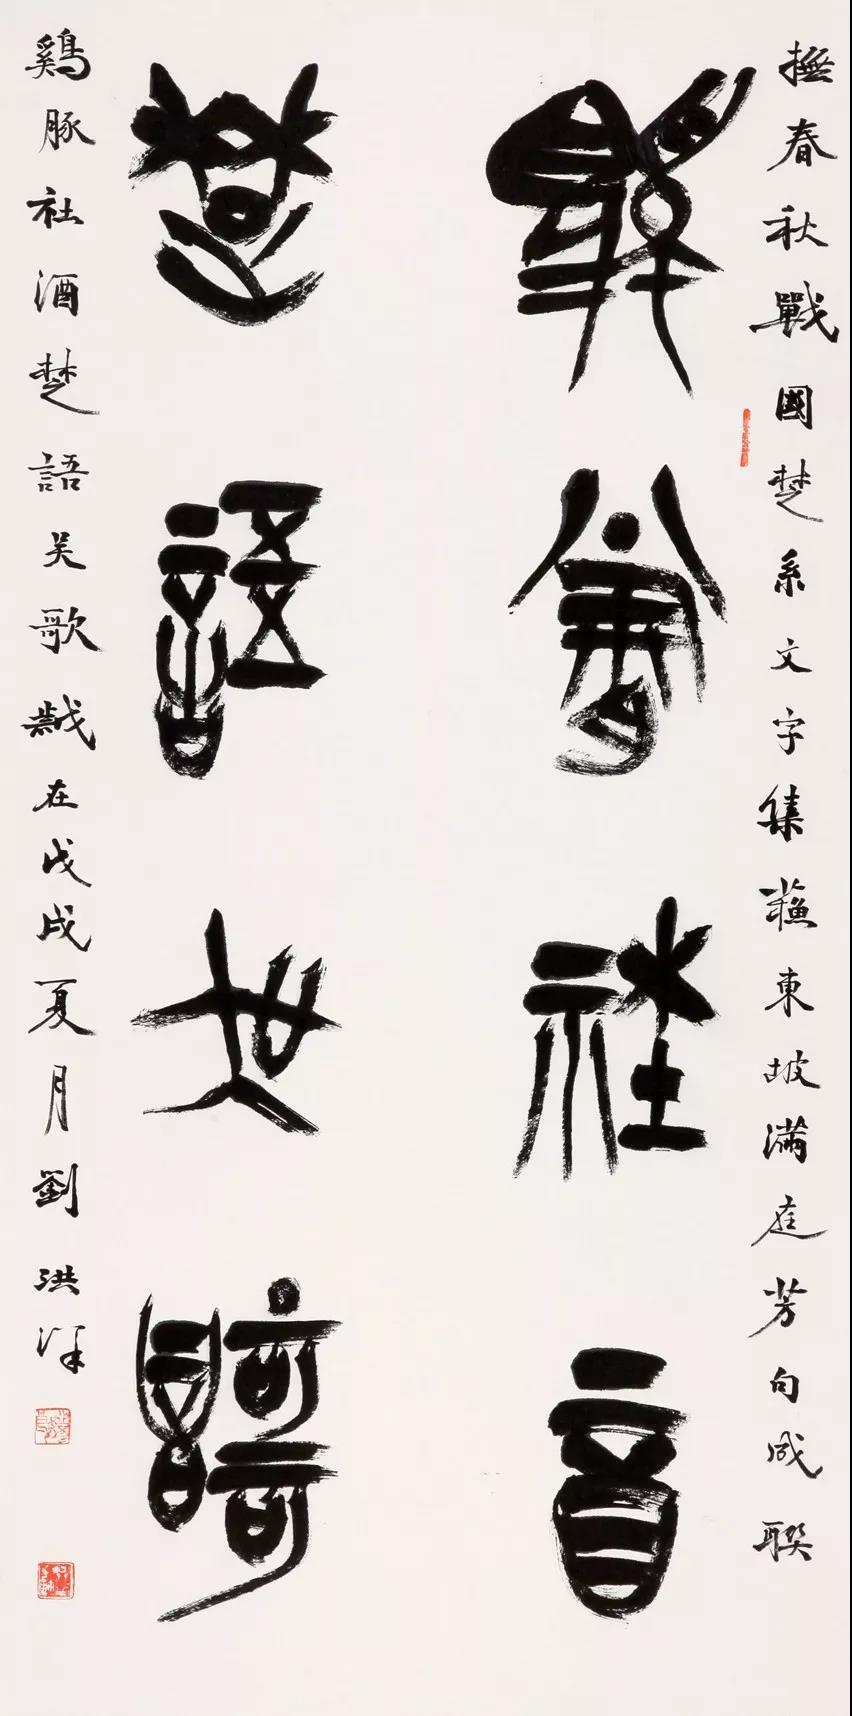 撫春秋戰國楚系文字集蘇東坡滿庭芳句成聯
鷄豚社酒
楚語吴歌
鷄豚社酒楚語吴歌歲在戊戌夏月劉洪洋